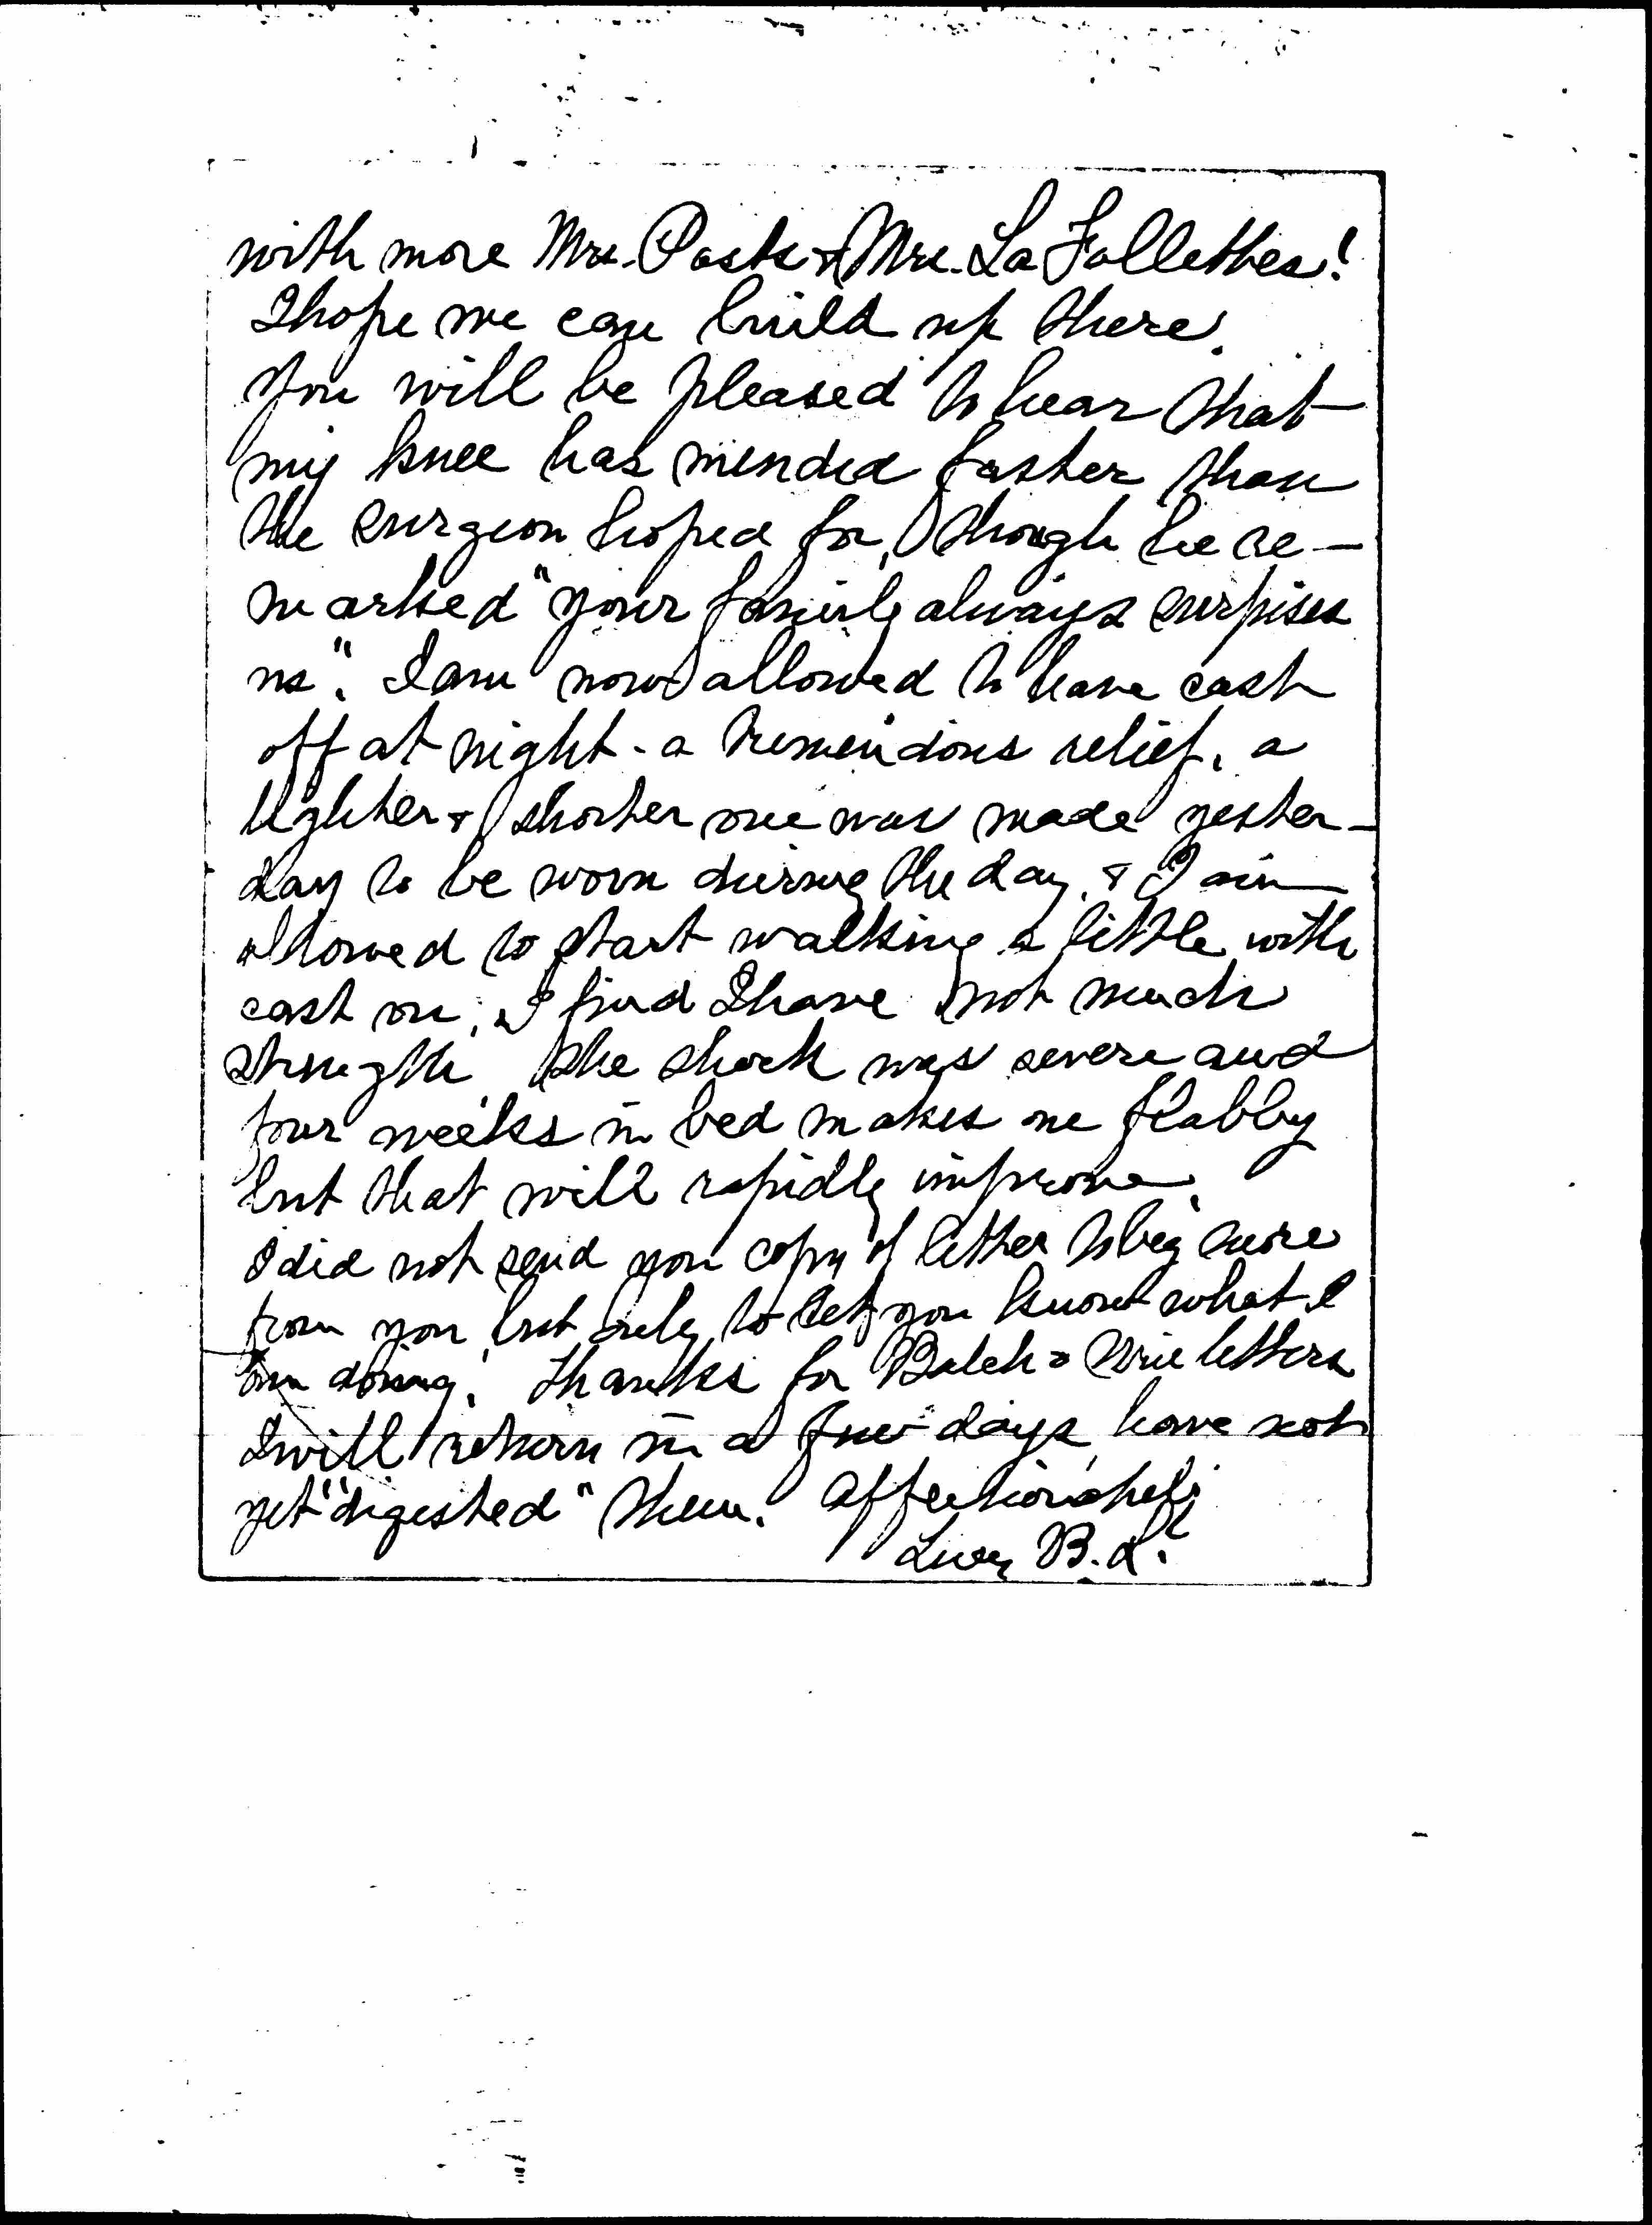 with more Mrs. Posts & Mrs. La Follettes!
I hope we can build up there.
You will be pleased to hear that
my knee has mended faster than
the surgeon hoped for, though he re-
marked "your family always surpises
us". I am now allowed to have cast
off at night - a tremendous relief, a
lighter & shorter one was made yester-
day to be worn during the day, & I am
allowed to start walking a little with
cast on; I find I have not much
strength, the shock was severe and
four weeks in bed makes one flabby
but that will rapidly improve.
I did not send you copy of letter to beg more
from you but only to let you know what I
am doing. Thanks for Balch & letters
I will return in a few days, have not
yet "digested" them. Affectionately
Lucy B. L.